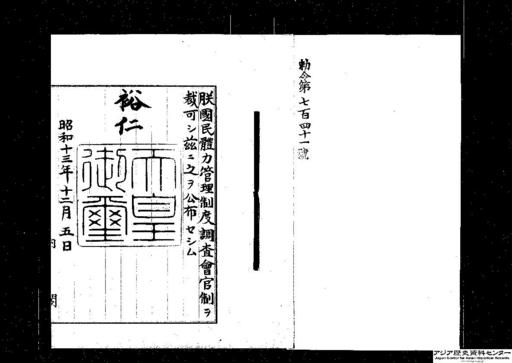 勅令第七百四十一號
朕國民體力管理制度調査會官制ヲ
裁可シ茲ニ之ヲ公布セシム
裕仁
天皇
御璽
昭和十三年十二月五日
内閣
アジア歴史資料センター
Japan Center for Asian Historical Records